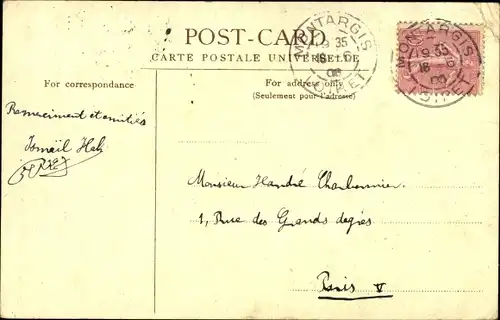 POST-CARD
CARTE POSTALE UNIVERSELLE
For correspondance
For address only
(Seulement pour l'adresse)
MONTARGIS
19 35
18
08
LOIRET
MONTARGIS
19 35
18
LOIRET
Remerciment et amitiés
Ismail
Monsieur Handré Charbonnier
1, Rue des Grands degrés
Paris V